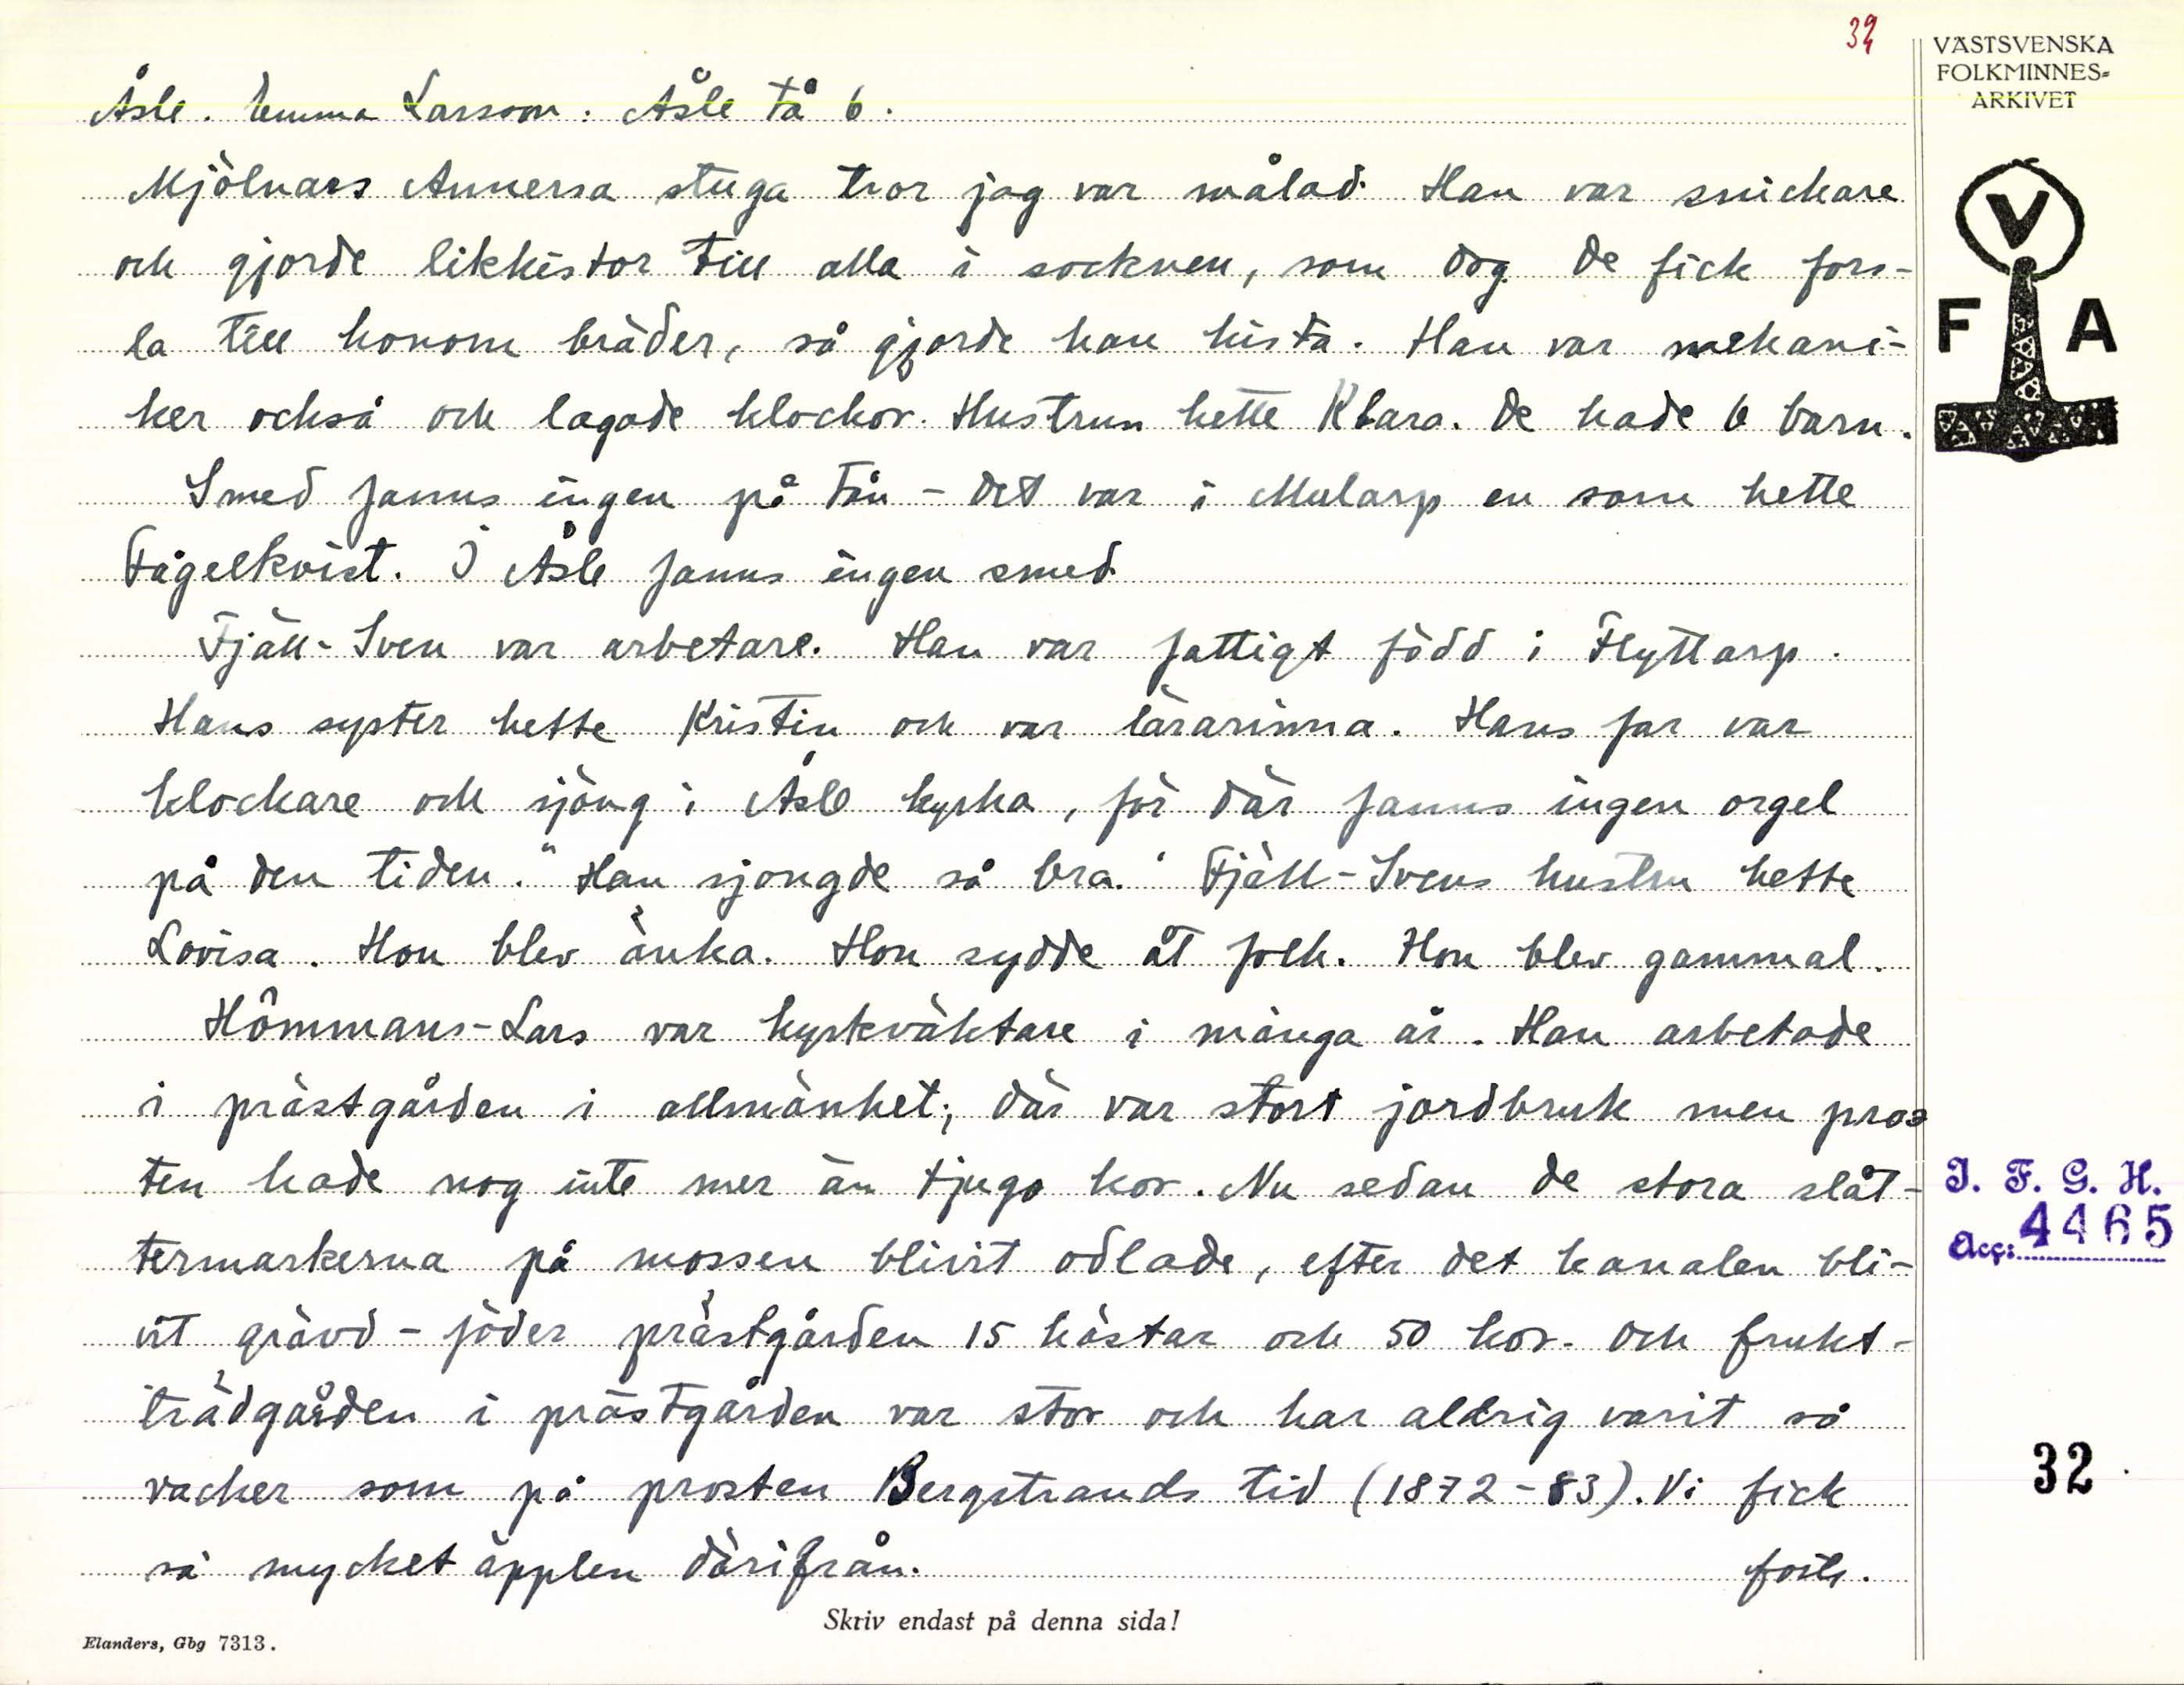 32
VÄSTSVENSKA
FOLKMINNES-
ARKIVET
V
F A
Åsle. Emma Larsson: Åsle tå 6.
Mjölnars Annersa stuga tror jag var målad. Han var snickare
och gjorde likkistor till alla i socknen, som dog. De fick fors-
la till honom bräder, så gjorde han kista. Han var mekani-
ker också och lagade klockor. Hustrun hette Klara. De hade 6 barn.
Smed fanns ingen på tån - det var i Mularp en som hette
Fågelkvist. I Åsle fanns ingen smed.
Fjäll-Sven var arbetare. Han var fattigt född i Flyttorp.
Hans syster hette Kristin och var lärarinna. Hans far var
klockare och sjöng i Åsle kyrka, för där fanns ingen orgel
på den tiden. "Han sjongde så bra." Fjäll-Svens hustru hette
Lovisa. Hon blev änka. Hon sydde åt folk. Hon blev gammal.
Hômmans-Lars var kyrkväktare i många år. Han arbetade
i prästgården i allmänhet; där var stort jordbruk men pros
ten hade nog inte mer än tjugo kor. Nu sedan de stora slåt-
termarkerna på mossen blivit odlade, efter det kanalen bli-
vit grävd - föder prästgården 15 hästar och 50 kor. Och frukt-
trädgården i prästgården var stor och har aldrig varit så
vacker som på prosten Bergstrands tid (1872-83). Vi fick
så mycket äpplen därifrån. forts.
I. F. G. H.
Acc: 4465
32
Skriv endast på denna sida!
Elanders, Gbg 7313.